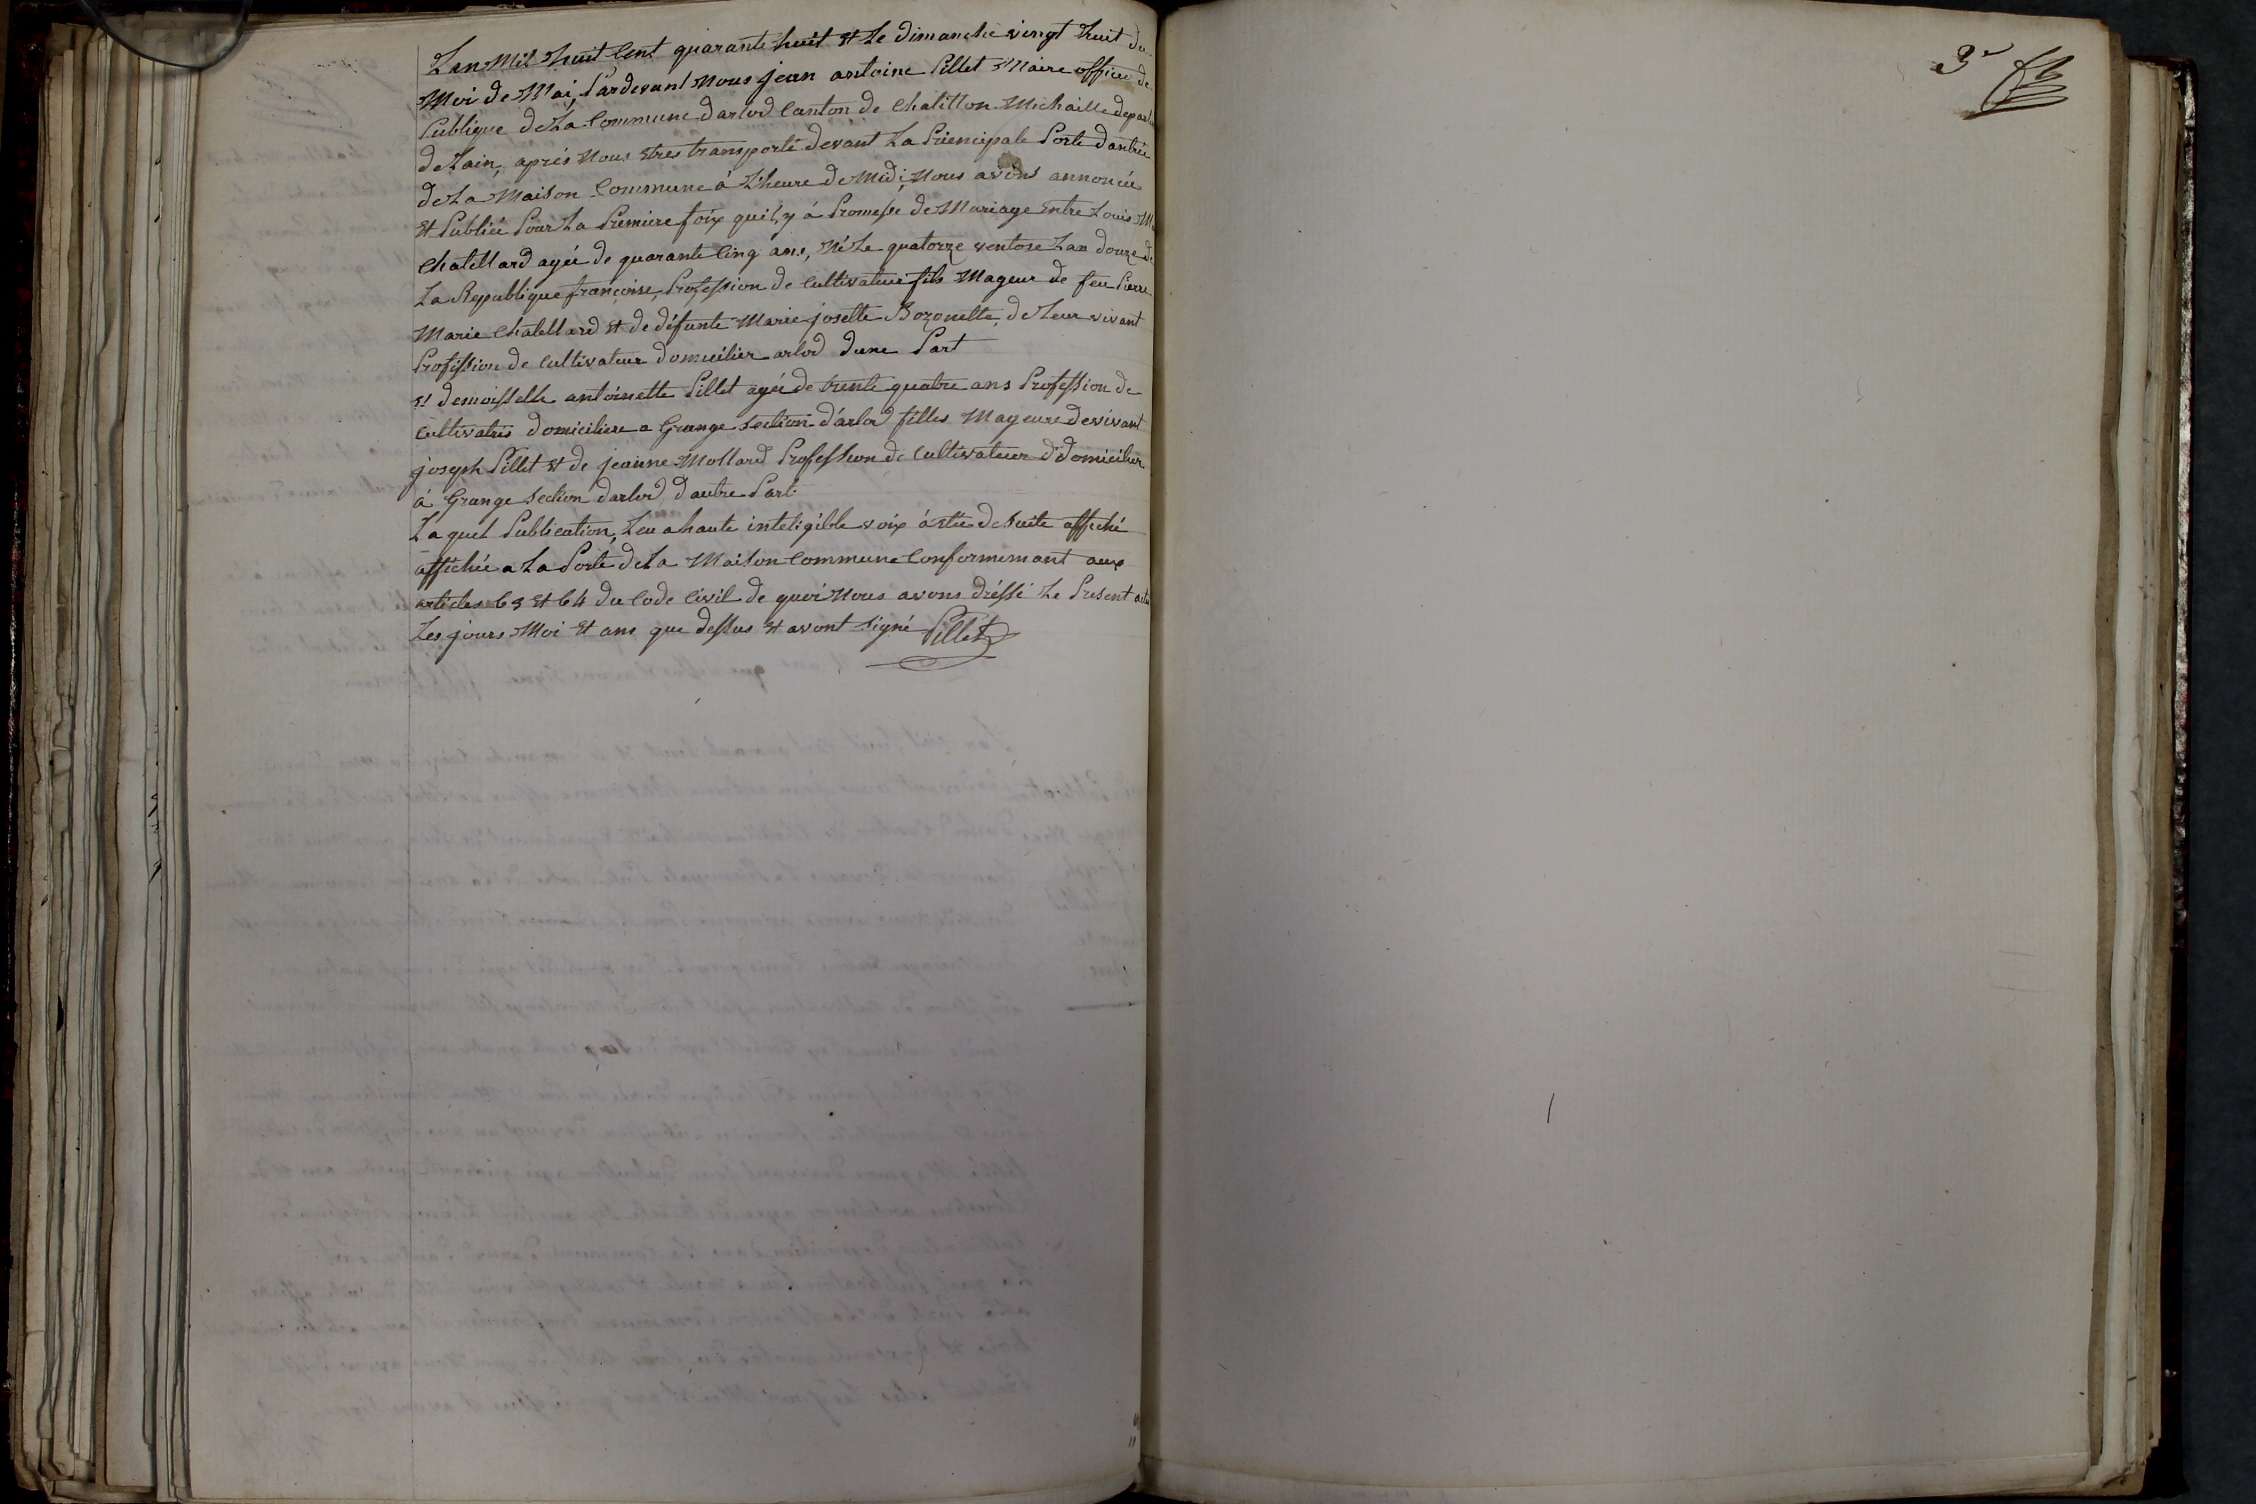 Lan Mil huit Cent quarante huit et Le dimanche vingt huit du
Moi de Mai, Pardevant Nous jean antoine Pillet Maire officier de
Publique de La Commune darlod Canton de Chatillon Michaille depart
de Lain, aprés Nous etres transporté devant La Priencipale Porte dantrée
de La Maison Commune á L'heure de Midi, Nous avons annoncée
et Publiée Pour La Premiere foix quil y á Promesse de Mariage entre Louis M
Chatellard agée de quarante Cinq ans, Né Le quatorze ventose Lan douze de
La Republique françoise, Profession de Cultivateur fils Mageur de feu Pierre
Marie Chatellard et de défunte Marie josette Bozonette, de Leur vivant
Profession de Cultivateur domicilier arlod dune Part
et demoisselle antoinette Pillet agée de trente quatre ans Profession de
Cultivatris domiciliere a Grange Section d'arlod filles Mageure de vivant
joseph Pillet et de jeanne Mollard Profession de Cultivateur domicilier
á Grange Section darlod dautre Part
Laquel Publication, Leu a haute inteligible voix á étée de Suite affiché
affichée a La Porte de La Maison Commune Conformemant aux
articles 63 et 64 du Code Civil de quoi Nous avons dréssé Le Present acte
Les jours Moi et ans que dessus et avont signé Pillet
3e